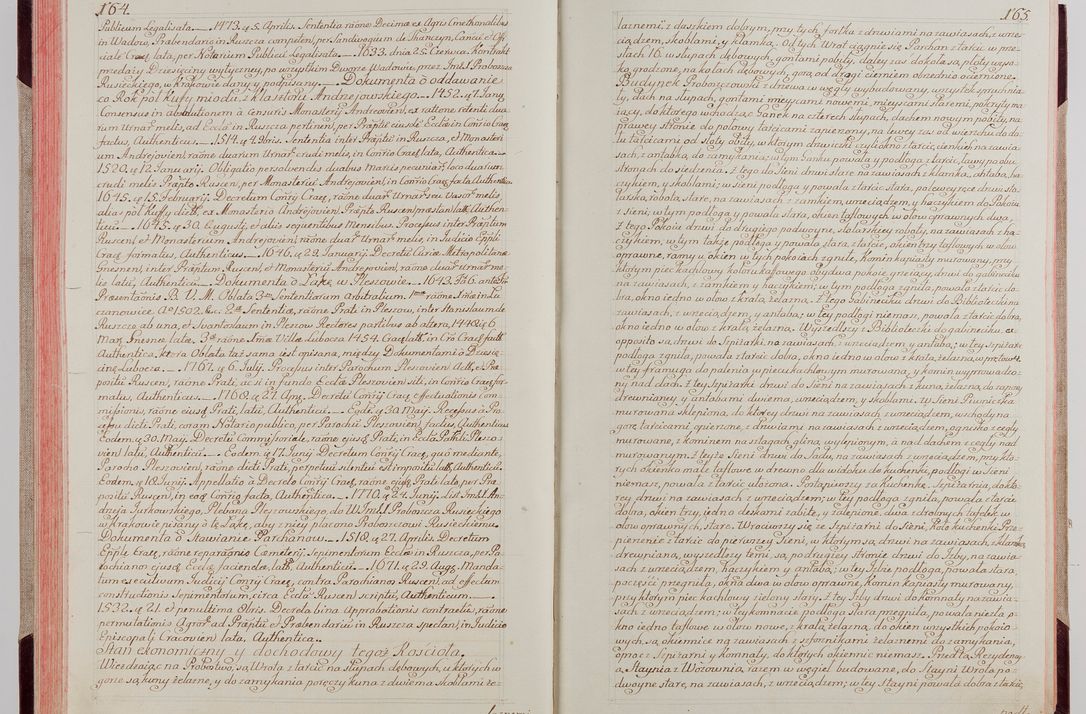 164.
Publicum Legalisata. — 1473. 5. Aprilis. Sententia raõne Decimæ ex Agris Cmethonalibus
in Wadow, Præbendario in Ruszcza competen, per Sandivogium de Thanczyn, Canci et Offi
ciale Crac lata, per Notarium Publicū Legalisata. — 1633. dnia 25. Czerwca. Kontrakt
przedazy Dziesięciny wytyczney, po wszystkim Dworze Wadowie, przez Imć X Proboszcza
Rusieckiego, w Krakowie dany, y podpisany. Dokumenta o oddawanie
co Rok pół kuffy miodu, z klasztoru Andrzejowskiego. — 1452. 4 Juny
Consensus in absolutionem à censuris Monasterij Andreovien, ex rattone retenti dua
rum Urnar melis, ad Ecclã in Ruszcza pertinen, per Præptū eiusdē Ecclæ in Conrio Crac
factus, Authenticus. — 1514. 4. 9bris. Sententia inter Præptū in Ruszcza, et Monasteri
um Andrejovien, raõne duarum Urnar crudi melis, in Conrio Crac lata, Authentica.
1520. 12. Januarij. Obligatio persolvendis duabus Marcis pecuniar, loco duarum
crudi melis Præpto Ruscen, per Monasteriū Andrejovien, in Conrio Crac facta Authentica
1645. 15. Februarij. Decretum Conrÿ Crac, raõne duar Urnar seu Vasor melis,
alias pół Kuffy dicti, ex Monasterio Andrejovien, Præpto Ruscen præstan latū, Authen-
ticū. — 1645. 30. Augusti, et aliis sequentibus Mensibus. Processus inter Præptum
Ruscen, et Monasterium Andrejovien, raõne duar Urnar melis, in Judicio Eppli
Crac formatus, Authenticus. — 1646. 29. Januarij. Decretū Curiæ Metropolitanæ
Gnesnen, inter Præptum Ruscen, et Monasteriū Andrejovien, raõne duar Urnar me
lis latū, Authenticū. Dokumenta o Łąkę, w Pleszowie. — 1643.
Præsentaõnis B. V. M. Oblata 3um Sententiarum arbitralium. 1mæ raõne
czanowice Aº 1502. 2dæ Sententiæ, raõne Prati in Pleszow, inter Stanislaum de
Ruszcza ab una, et Svantoslaum in Pleszow Rectores partibus ab altera, 1440. 6
Maij Gnesnæ latæ. 3æ raõne Villæ Łubocza 1454. Crac latæ, in Crõ Crac factæ
Authentica, ktora Oblata taż sama iest opisana, między Dokumentami o Dziesię
cinę Łubocza. — 1767. 6. Julij. Processus inter Parochum Pleszovien Acti, et Præ
positū Ruscen, raõne Prati, ac si in fundo Ecclæ Pleszovien siti, in Conrio Crac for
matus, Authenticus. — 1768. 27. Apri. Decretū Conrÿ Crac effectuationis com-
missionis, raõne eiusd Prati, latū, Authenticū. — Eodē. 30. Maij. Recessus à Pro
cessu dicti Prati, coram Notario publico, per Parochū Pleszovien factus, Authenticus
Eodem, 30. Maij. Decretū Commissoriale, raõne ejusq Prati, in Ecclã Parchli Pleszo-
vien latū, Authenticū. — Eodem. 17. Junij Decretum Conrÿ Crac, quo mediante,
Parocho Pleszovien, raõne dicti Prati, perpetuū silentiū est impositū latū, Authenticū.
Eodem. 18. Junij. Appellatio à Decreto Conrÿ Crac, raõne ejusd Prati lato, per Præ
positū Ruscen, in eoq Conrio facta, Authentica. — 1770. 24. Junij. List Imć X An-
drzeja Jurkowskiego, Plebana Pleszowskiego, do W Imć X Proboszcza Rusieckiego
w Krakowie pisany, o tę Łąkę, aby z niey płacono Proboszczowi Rusieckiemu.
Dokumenta o Stawianie Parchanow. — 1518. 27. Aprilis. Decretum
Eppli Crac, raõne reparaõnis Cæmeterij, Sepimentorum Ecclæ in Ruszcza, per Pa-
rochianor ejusq Ecclæ faciendæ, latū, Authenticū. — 1671. 29. Augs. Manda-
tum executivum Judicij Conrÿ Crac, contra Parochianor Ruscen, ad effectum
constructionis Sepimentorum, circa Ecclã Ruscen scriptū, Authenticum. —
1532. 21. et penultima Obris. Decreta bina approbationis contractus, raõne
permutationis Agror ad Præptū et Præbendariū in Ruszcza spectan, in Judicio
Episcopali Cracovien lata, Authentica.
Stan ekonomiczny y dochodowy tegoż Kościoła.
Wcedzaiąc na Probostwo, są Wrota z tarcic na słupach dębowych, u ktorych w
gorze są kuny żelazne, y do zamykania poręczy kuna z dwiema skoblami że-
laznemi
165.
laznemi z daszkiem dobrym, przy tych fortka z drzwiami na zawiasach, z wrze-
ciądzem, skoblami, y klamką. Od tych Wrot ciągnie się Parchan z tarcic w prze-
słach 16. w słupach dębowych, gontami pobity, daley zas dokoła są płoty wyso-
ko grodzone, na kołach dębowych, gora od drogi cierniem obrzednio ocierniona.
Budynek Proboszczowski z drzewa w węgły wybudowany, wszystek spruchnia-
ły, dach na słupach, gontami mieyscami nowemi, mieyscami staremi, pokryty ma
iący, do ktorego wchodząc Ganek na czterech słupach, dachem nowym pobity, na
prawey stronie do połowy tarcicami zapierzony, na lewey zas od wierzchu do do-
łu tarcicami od słoty obity, w ktorym drzwiczki czyli okno z tarcic, cienkich na zawia
sach, z antabką, do zamykania; w tym Ganku powała y podłoga z tarcic, ławy po obu
stronach do siedzenia. Z tego do Sieni drzwi stare na zawiasach z klamką, antabą, ha-
czykiem, y skoblami; w sieni podłoga y powała z tarcic stara, po lewey ręce drzwi sto-
larską robotą, stare, na zawiasach z zamkiem, wrzeciądzem, y haczykiem do Pokoiu
z sieni; w tym podłoga y powała stara, okien taflowych w ołow oprawnych dwa,
Z tego Pokoiu drzwi do drugiego podwoyne, stolarskiey roboty, na zawiasach z ha-
czykiem; w tym także podłoga y powała, stara, z tarcic, okien trzy taflowych w ołow
oprawne, ramy u okien w tych pokoiach zgniłe, Komin kapiasty murowany, przy
ktorym piec kachlowy koloru kaffowego obydwa pokoie, grzeiący, drzwi do gabineciku
na zawiasach, z zamkiem y haczykiem; w tym podłoga zgniła, powała z tarcic do-
bra, okno iedno w ołow z kratą żelazną. Z tego Gabineciku drzwi do Biblioteczki na
zawiasach, z wrzeciądzem, y antabą; w tey podłogi niemasz, powała z tarcic dobra,
okno iedno w ołow z kratą żelazną. Wyszedłszy z Biblioteczki do gabineciku, ex
opposito są drzwi do Szpiżarki na zawiasach z wrzeciądzem y antabą; w tey Szpiżarce
podłoga zgniła, powała z tarcic dobra, okno iedno w ołow z kratą żelazną,
w tey framuga do palenia w piecu kachlowym murowana, y komin wyprowadzo-
ny nad dach. Z tey Szpiżarki drzwi do Sieni na zawiasach z kuną żelazną, do zapory
drewnianey y antabami dwiema, wrzeciądzem, y skoblami. W Sieni Piwniczka
murowana sklepiona, do ktorey drzwi na zawiasach z wrzeciądzem, wschody na
gorę tarcicami, opierzone, z drzwiami na zawiasach z wrzeciądzem, ognisko z cegły
murowane, z kominem na szlagach gliną wylepionym, a nad dachem z cegły nad
murowanym. Z teyże Sieni drzwi do Sadu, na zawiasach z wrzeciądzem, przy kto-
rych okienko małe taflowe w drzewo dla widoku do kuchenki, podłogi w Sieni
niemasz, powała z tarcic ułożona. Postąpiwszy za Kuchenkę, Szpiżarnia, do kto-
rey drzwi na zawiasach z wrzeciądzem, w tey podłoga zgniła, powała z tarcic
dobra, okien trzy, iedno deskami zabite, y zalepione, dwa z drobnych tafelek w
ołow oprawnych, stare. Wrociwszy się ze Szpiżarni do Sieni, koło kuchenki Prze-
pierzenie z tarcic do pierwszey Sieni, w ktorym są drzwi na zawiasach, z klamką
drewnianą, wyszedłszy temi, są po drugiey stronie drzwi do Izby, na zawia
sach z wrzeciądzem, haczykiem y antabą; w tey Izbie podłoga, powała stara,
poczęści przegniła, okna dwa w ołow oprawne, Komin kapiasty murowany,
przy ktorym piec kachlowy zielony stary. Z tey Izby drzwi do komnaty na zawia-
sach z wrzeciądzem; w tey komnacie podłoga stara przegniła, powała niezła, o-
kno iedno taflowe w ołow nowe, z kratą żelazną, do okien wszystkich pokoio-
wych, są okiennice na zawiasach z szpornikami żelaznemi do zamykania,
oprocz Szpiżarni y komnaty, do ktorych okiennic niemasz. Przed tą Rezydency-
ą, Staynia z Wozownią, razem w węgieł budowane, do Stayni Wrota po-
dwoyne stare, na zawiasach, z wrzeciądzem; w tey Stayni powała dobra z tarcic,